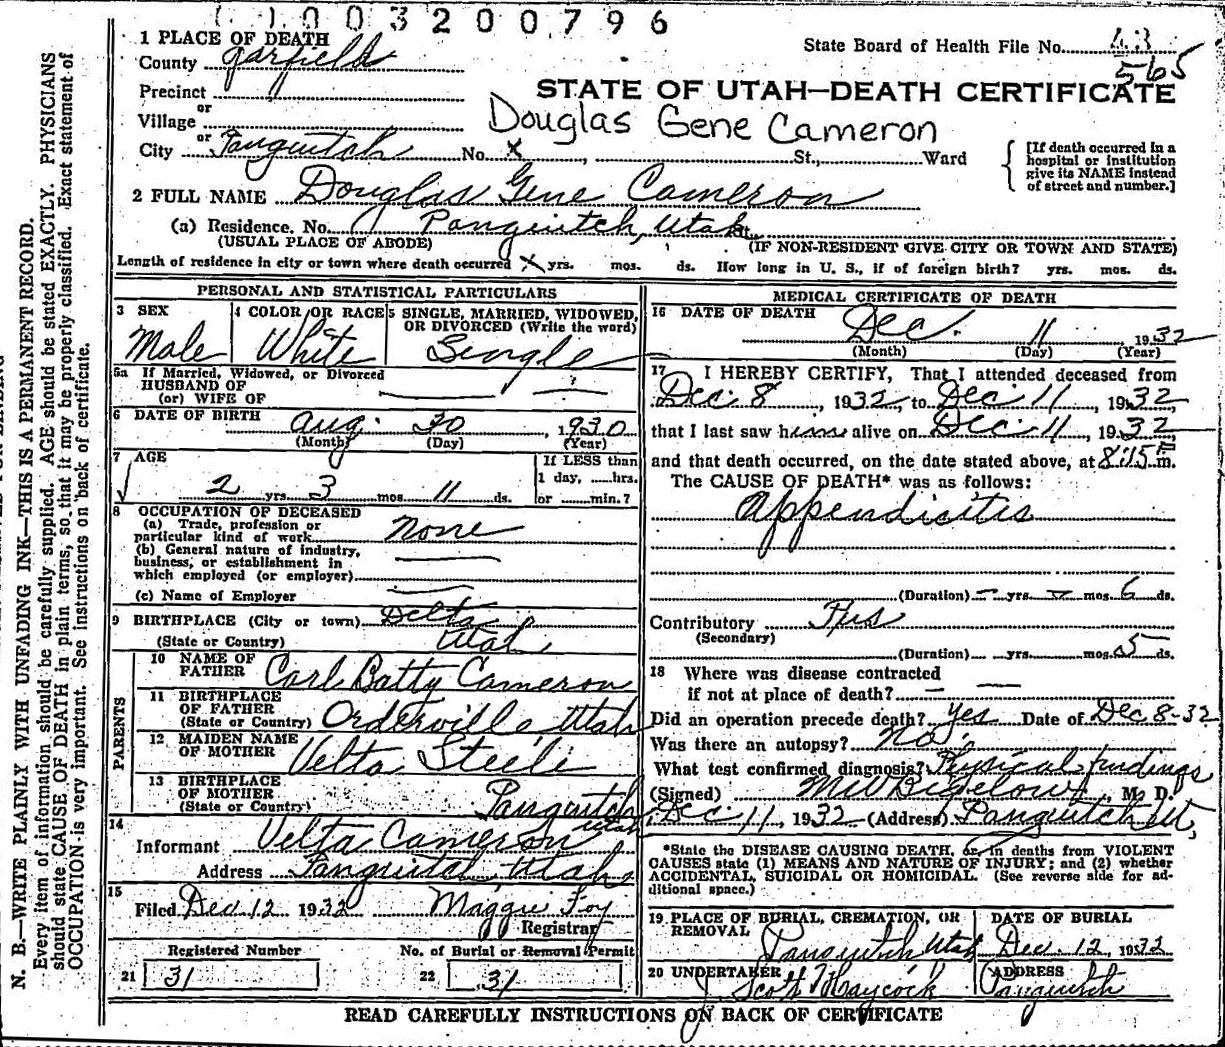 0 0 3 2 0 0 7 9 6
1 PLACE OF DEATH
County Garfield
State Board of Health File No. 43
565
Precinct
STATE OF UTAH—DEATH CERTIFICATE
or
Village
Douglas Gene Cameron
or
City Panguitch No. x , St., Ward
[If death occurred in a hospital or institution give its NAME instead of street and number.]
2 FULL NAME Douglas Gene Cameron
(a) Residence. No. Panguitch, Utah St.
(USUAL PLACE OF ABODE) (IF NON-RESIDENT GIVE CITY OR TOWN AND STATE)
Length of residence in city or town where death occurred x yrs. mos. ds. How long in U. S., if of foreign birth? yrs. mos. ds.
PERSONAL AND STATISTICAL PARTICULARS
3 SEX
Male
4 COLOR OR RACE
White
5 SINGLE, MARRIED, WIDOWED,
OR DIVORCED (Write the word)
Seingle
5a If Married, Widowed, or Divorced
HUSBAND OF
(or) WIFE OF
6 DATE OF BIRTH Aug. 30, 1930
(Month) (Day) (Year)
7 AGE
2 yrs. 3 mos. 11 ds.
If LESS than
1 day, ......hrs.
or ......min.?
8 OCCUPATION OF DECEASED
(a) Trade, profession or
particular kind of work None
(b) General nature of industry,
business, or establishment in
which employed (or employer)
(c) Name of Employer
9 BIRTHPLACE (City or town) Delta
(State or Country) Utah
PARENTS
10 NAME OF
FATHER Carl Batty Cameron
11 BIRTHPLACE
OF FATHER
(State or Country) Orderville Utah
12 MAIDEN NAME
OF MOTHER Velta Steele
13 BIRTHPLACE
OF MOTHER
(State or Country) Panguitch
Utah
14
Informant Velta Cameron
Address Panguitch, Utah
15
Filed Dec 12 1932 Maggie Foy
Registrar
Registered Number No. of Burial or Removal Permit
21 31 22 31
MEDICAL CERTIFICATE OF DEATH
16 DATE OF DEATH Dec. 11 1932
(Month) (Day) (Year)
17 I HEREBY CERTIFY, That I attended deceased from
Dec. 8, 1932, to Dec 11, 1932,
that I last saw him alive on Dec. 11, 1932
and that death occurred, on the date stated above, at 8:15 P m.
The CAUSE OF DEATH* was as follows:
Appendicitis
(Duration) — yrs. — mos. 6 ds.
Contributory
(Secondary)
(Duration) yrs. mos. 5 ds.
18 Where was disease contracted
if not at place of death? —
Did an operation precede death? yes Date of Dec 8-32
Was there an autopsy? No.
What test confirmed diagnosis? Physical findings
(Signed) M W Bigelow, M. D.
Dec 11, 1932 (Address) Panguitch Ut,
*State the DISEASE CAUSING DEATH, or, in deaths from VIOLENT
CAUSES state (1) MEANS AND NATURE OF INJURY; and (2) whether
ACCIDENTAL, SUICIDAL OR HOMICIDAL. (See reverse side for ad-
ditional space.)
19 PLACE OF BURIAL, CREMATION, OR
REMOVAL
Panguitch Utah
DATE OF BURIAL
Dec. 12, 1932
20 UNDERTAKER
J. Scott Haycock
ADDRESS
Panguitch
READ CAREFULLY INSTRUCTIONS ON BACK OF CERTIFICATE
N. B.—WRITE PLAINLY WITH UNFADING INK—THIS IS A PERMANENT RECORD.
Every item of information should be carefully supplied. AGE should be stated EXACTLY. PHYSICIANS
should state CAUSE OF DEATH in plain terms, so that it may be properly classified. Exact statement of
OCCUPATION is very important. See instructions on back of certificate.